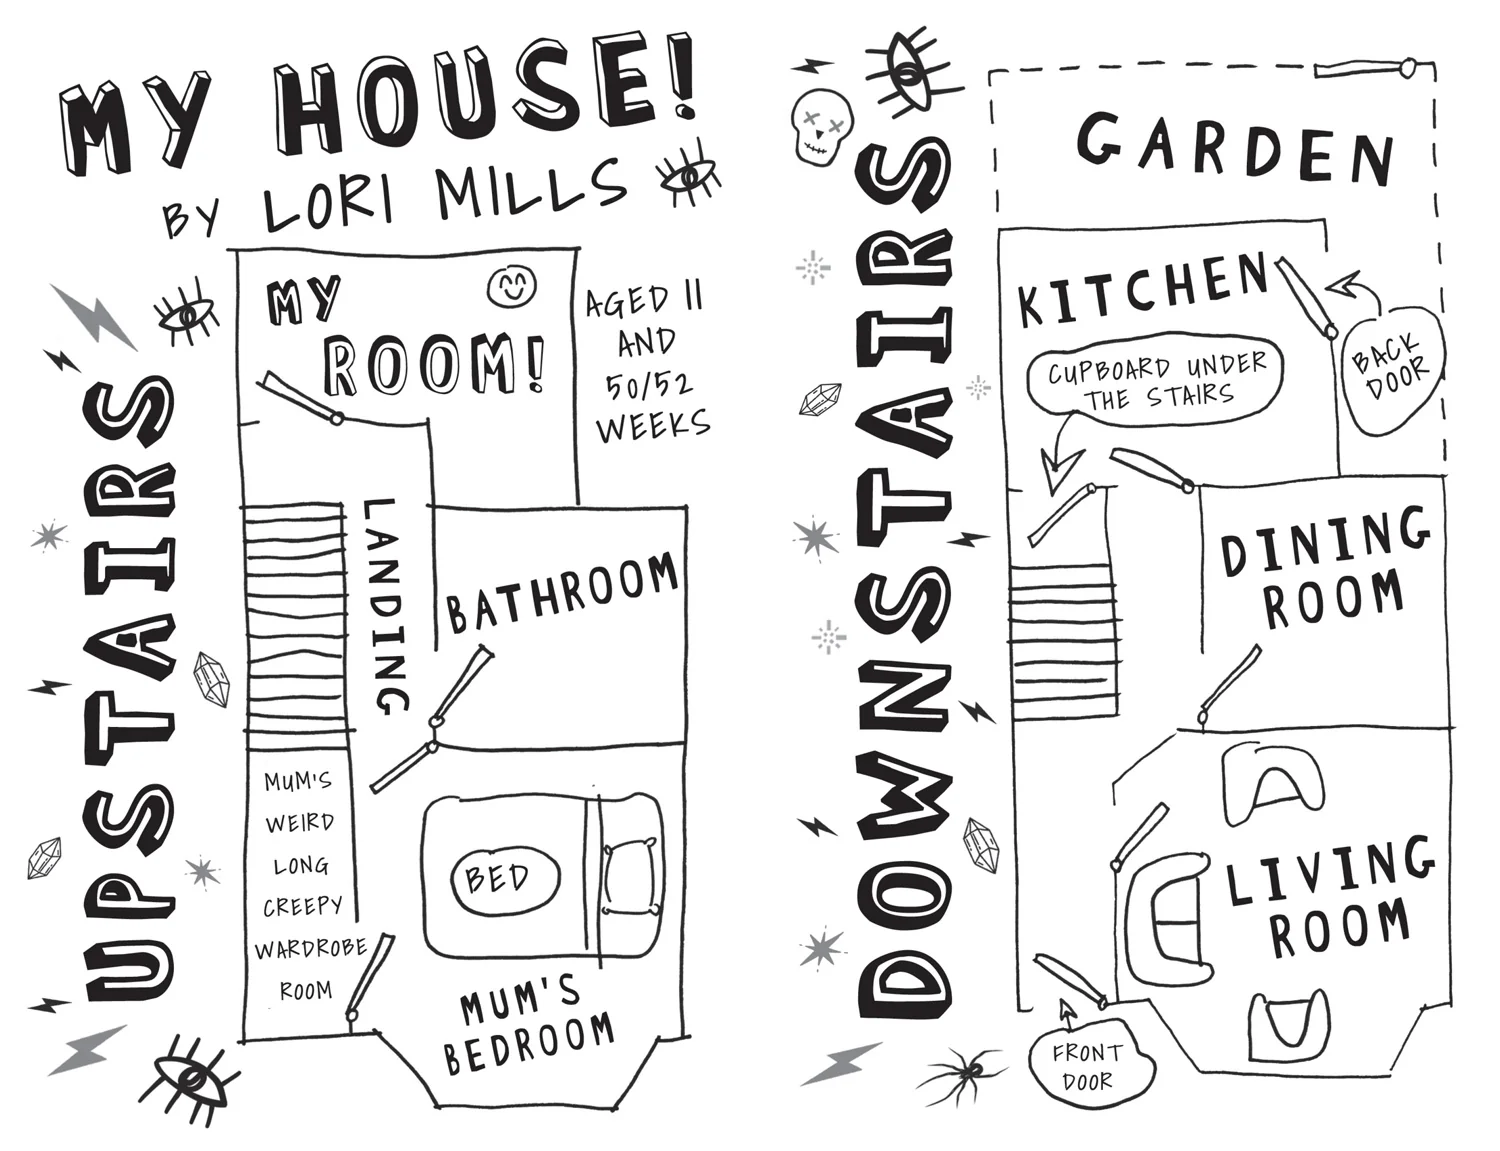 MY HOUSE!
BY LORI MILLS
AGED 11
AND
50/52
WEEKS
UPSTAIRS
MY
ROOM!
LANDING
BATHROOM
MUM'S
WEIRD
LONG
CREEPY
WARDROBE
ROOM
BED
MUM'S
BEDROOM
DOWNSTAIRS
GARDEN
KITCHEN
BACK
DOOR
CUPBOARD UNDER
THE STAIRS
DINING
ROOM
LIVING
ROOM
FRONT
DOOR